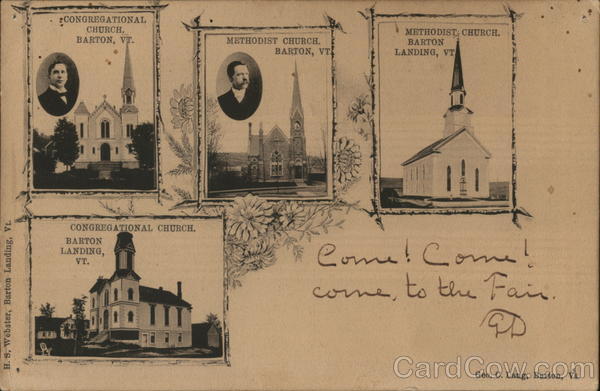 CONGREGATIONAL
CHURCH.
BARTON, VT.
METHODIST CHURCH.
BARTON, VT.
METHODIST CHURCH.
BARTON
LANDING, VT.
CONGREGATIONAL CHURCH.
BARTON
LANDING,
VT.
Come! Come!
come, to the Fair.
GD
H. S. Webster, Barton Landing, Vt.
Geo. C. Lang, Barton, Vt.
CardCow.com